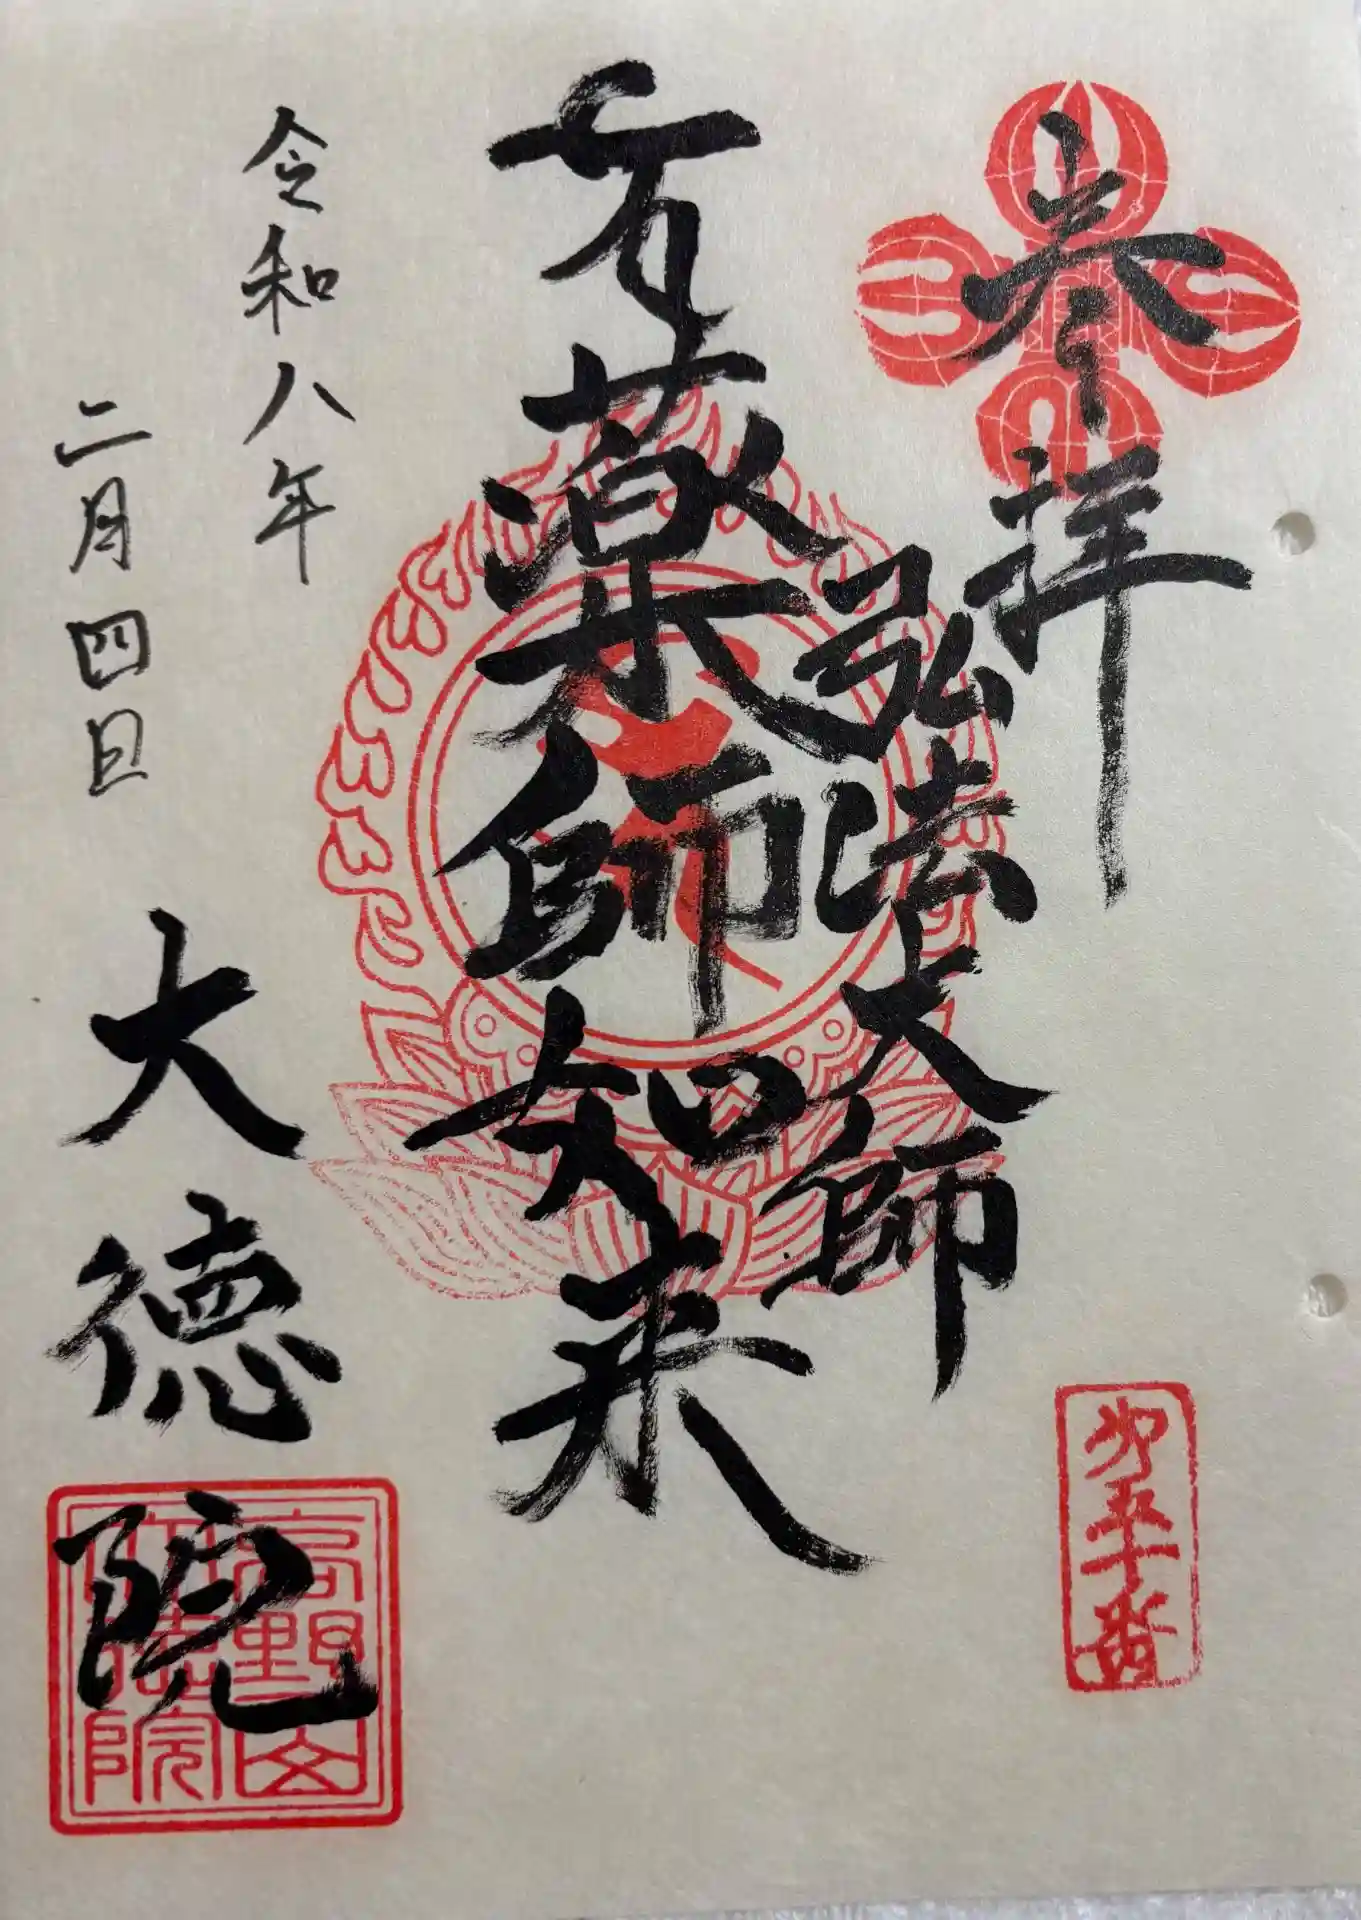 奉拝
弘法大師
薬師如来
令和八年
二月四日
大徳院
五十番
高野山
大徳院